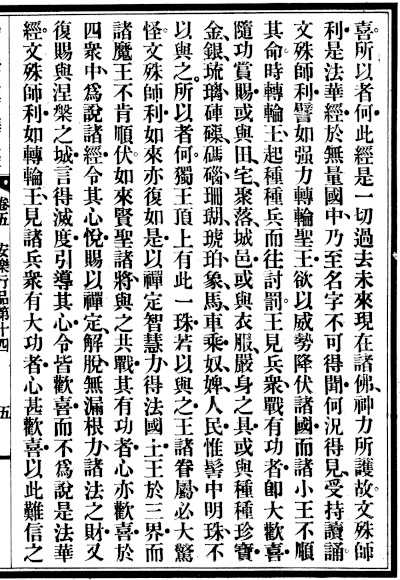 喜所以者何此經是一切過去未來現在諸佛神力所護故文殊師
利是法華經於無量國中乃至名字不可得聞何況得見受持讀誦
文殊師利譬如强力轉輪聖王欲以威勢降伏諸國而諸小王不順
其命時轉輪王起種種兵而往討罰王見兵衆戰有功者卽大歡喜
隨功賞賜或與田宅聚落城邑或與衣服嚴身之具或與種種珍寶
金銀琉璃硨磲碼碯珊瑚琥珀象馬車乘奴婢人民惟髻中明珠不
以與之所以者何獨王頂上有此一珠若以與之王諸眷屬必大驚
怪文殊師利如來亦復如是以禪定智慧力得法國土王於三界而
諸魔王不肯順伏如來賢聖諸將與之共戰其有功者心亦歡喜於
四衆中爲說諸經令其心悅賜以禪定解脫無漏根力諸法之財又
復賜與涅槃之城言得滅度引導其心令皆歡喜而不爲說是法華
經文殊師利如轉輪王見諸兵衆有大功者心甚歡喜以此難信之
卷五 安樂行品第十四 五